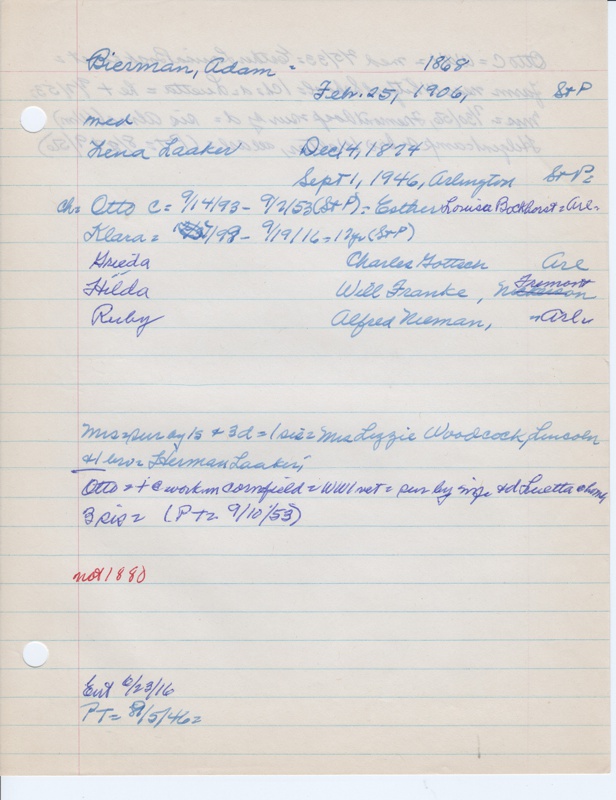 Bierman, Adam. 1868
Feb. 25, 1906, St P
med
Lena Laaker Dec 14, 1874
Sept 1, 1946, Arlington St P=
ch= Otto C = 9/14/93 - 9/2/53 (St P) = Esther Louisa Bockhorst = Arl-
Klara = /98 - 9/19/16 = 17yr (St P)
Grieda Charles Gottsch Arl
Hilda Will Franke, Fremont
Ruby Alfred Nieman, Arl
Mrs = sur by 1s + 3d = 1 sis = Mrs Lizzie Woodcock, Lincoln
+1 bro = Herman Laaker,
Otto = work in cornfield = WWI vet = sur by + d Luetta
3 sis = (PT= 9/10/53)
not 1880
Ent 6/23/16
PT= /5/46=